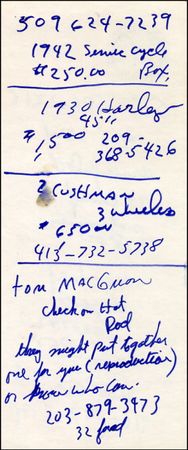 509 624-7239
1942 Service cycle
$250.00 Box,
1930 Harley
45"
$1,500 209-
368-5426
2 Cushman
3 wheeles
$65000
413-732-5738
tom MACGuon
check on Hot
Rod
they might put together
one for you (reproduction)
or know who can.
203-879-3473
32 ford